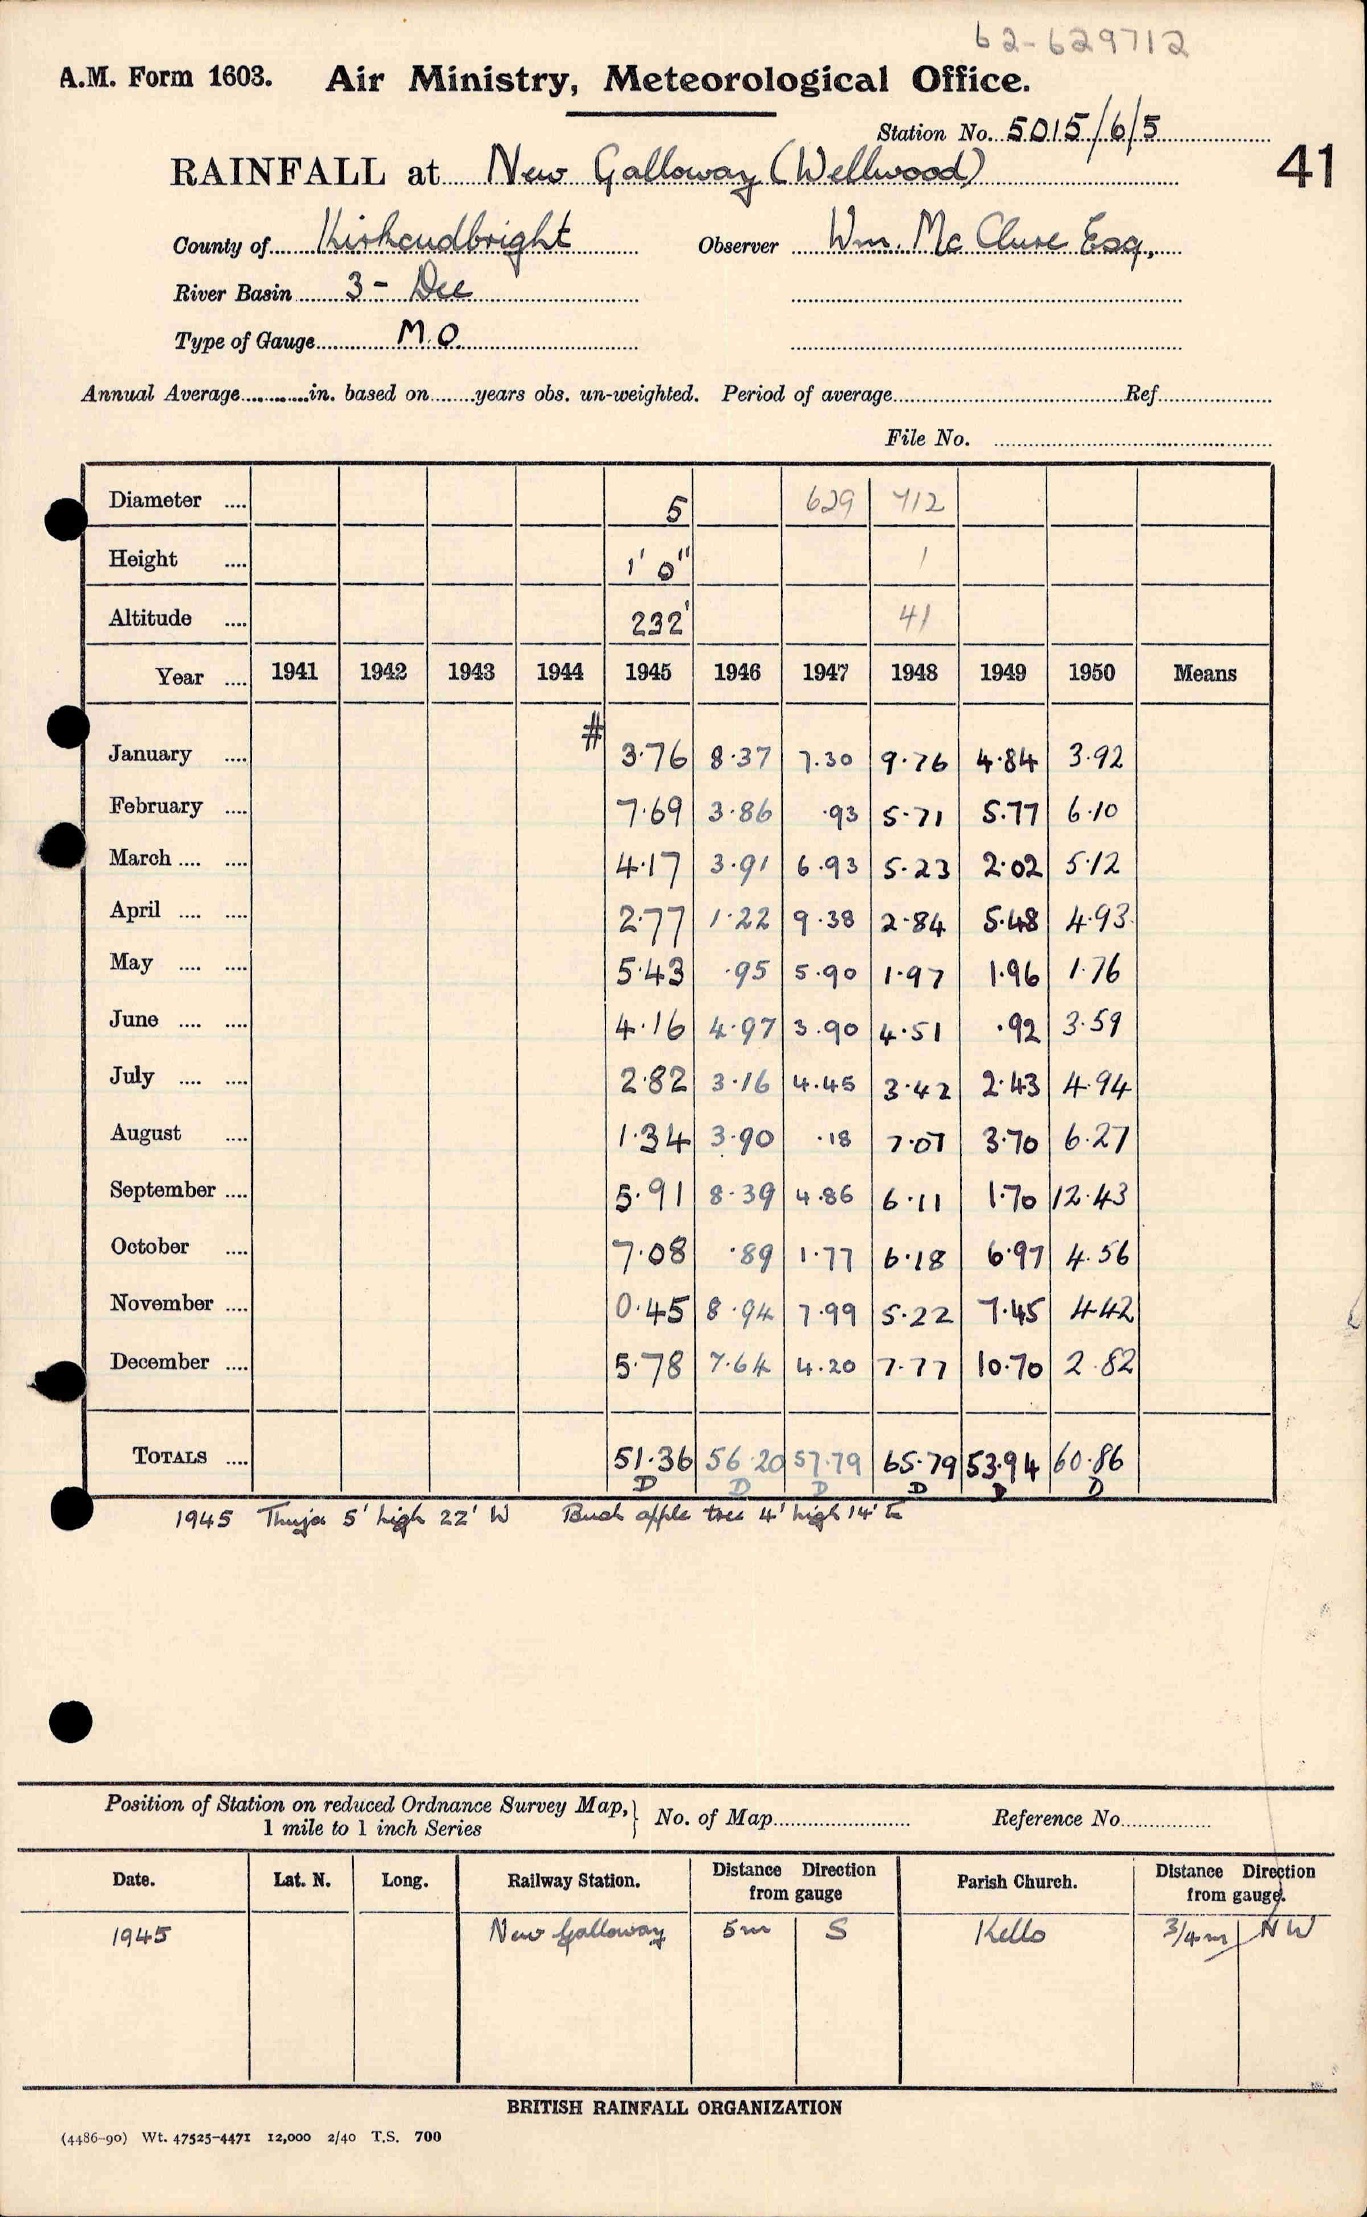 62-629712
A.M. Form 1603. Air Ministry, Meteorological Office.
Station No. 5015/6/5
RAINFALL at New Galloway (Wellwood)
41
County of Kirkcudbright Observer Wm. McClure Esq.,
River Basin 3 - Dee
Type of Gauge M.O.
Annual Average in. based on years obs. un-weighted. Period of average Ref
File No.
Diameter 5 629 712
Height 1' 0" 1
Altitude 232' 41
Year 1941 1942 1943 1944 1945 1946 1947 1948 1949 1950 Means
#
January 3.76 8.37 7.30 9.76 4.84 3.92
February 7.69 3.86 .93 5.71 5.77 6.10
March 4.17 3.91 6.93 5.23 2.02 5.12
April 2.77 1.22 9.38 2.84 5.48 4.93
May 5.43 .95 5.90 1.97 1.96 1.76
June 4.16 4.97 3.90 4.51 .92 3.59
July 2.82 3.16 4.45 3.42 2.43 4.94
August 1.34 3.90 .18 7.07 3.70 6.27
September 5.91 8.39 4.86 6.11 1.70 12.43
October 7.08 .89 1.77 6.18 6.97 4.56
November 0.45 8.94 7.99 5.22 7.45 4.42
December 5.78 7.64 4.20 7.77 10.70 2.82
TOTALS 51.36 56.20 57.79 65.79 53.94 60.86
D D D D D D
1945 Thuja 5' high 22' W Bush apple tree 4' high 14' E
Position of Station on reduced Ordnance Survey Map, } No. of Map Reference No
1 mile to 1 inch Series
Date. Lat. N. Long. Railway Station. Distance Direction from gauge Parish Church. Distance Direction from gauge.
1945 New Galloway 5m S Kells 3/4m NW
BRITISH RAINFALL ORGANIZATION
(4486-90) Wt. 47525-4471 12,000 2/40 T.S. 700